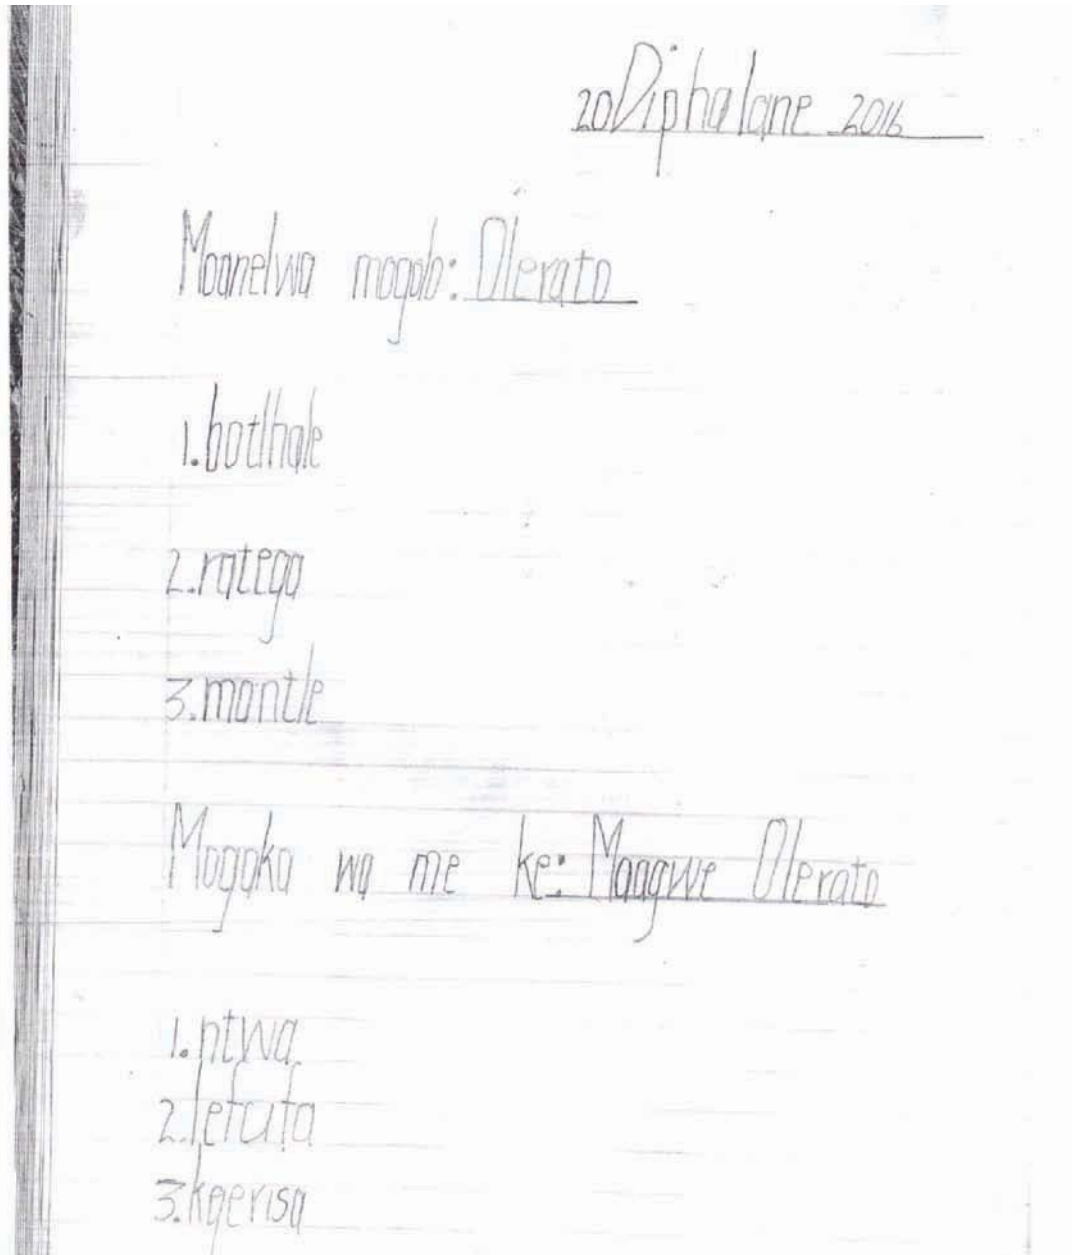 20 Diphalane 2016
Moanelwa mogolo: Olerato
1. botlhale
2. ratega
3. montle
Mogaka wa me ke: Maagwe Olerato
1. ntwa
2. lefufa
3. kgerisa